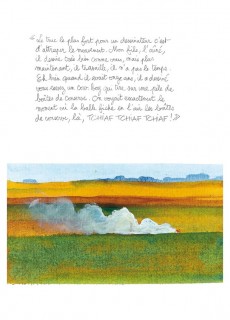 « Le truc le plus fort pour un dessinateur c'est
d'attraper le mouvement. Mon fils, l'aîné,
il dessine très bien comme vous, mais plus
maintenant, il travaille, il n'a pas le temps.
Eh bien quand il avait onze ans, il a dessiné
vous savez un cow boy qui tire sur une pile de
boîtes de conserve. On voyait exactement le
moment où la balle fiche en l'air les boîtes
de conserve, là, TCHIAF TCHIAF TCHIAF ! »